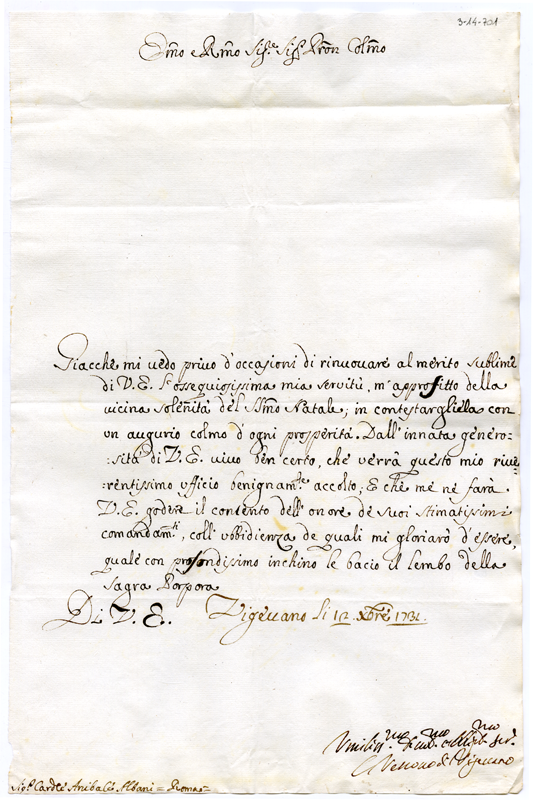 3-14-701
Em̃o e Rm̃o Sig.r Sig.r Prõn Colm̃o
Giacche mi vedo privo d'occasioni di rinuovare al merito sublime
di V. E. l'ossequiosissima mia servitù, m'approfitto della
vicina solen̄ità del SS̄mo Natale; in contestargliela con
un augurio colmo d'ogni prosperità. Dall'innata genero=
=sità di V. E. vivo ben certo, che verrà questo mio rive=
=rentissimo ufficio benignam.te accolto; E che me ne farà
V. E. godere il contento dell'onore de suoi stimatissimi
comandam.ti, coll'ubbidienza de quali mi gloriarò d'essere,
quale con profondissimo inchino le bacio il lembo della
sagra Porpora
Di V. E. Vigevano li 12 Xbre 1731.
Umiliss.mo
Vescovo di Vigevano
Sig.r Card.le Anibale Albani = Roma =